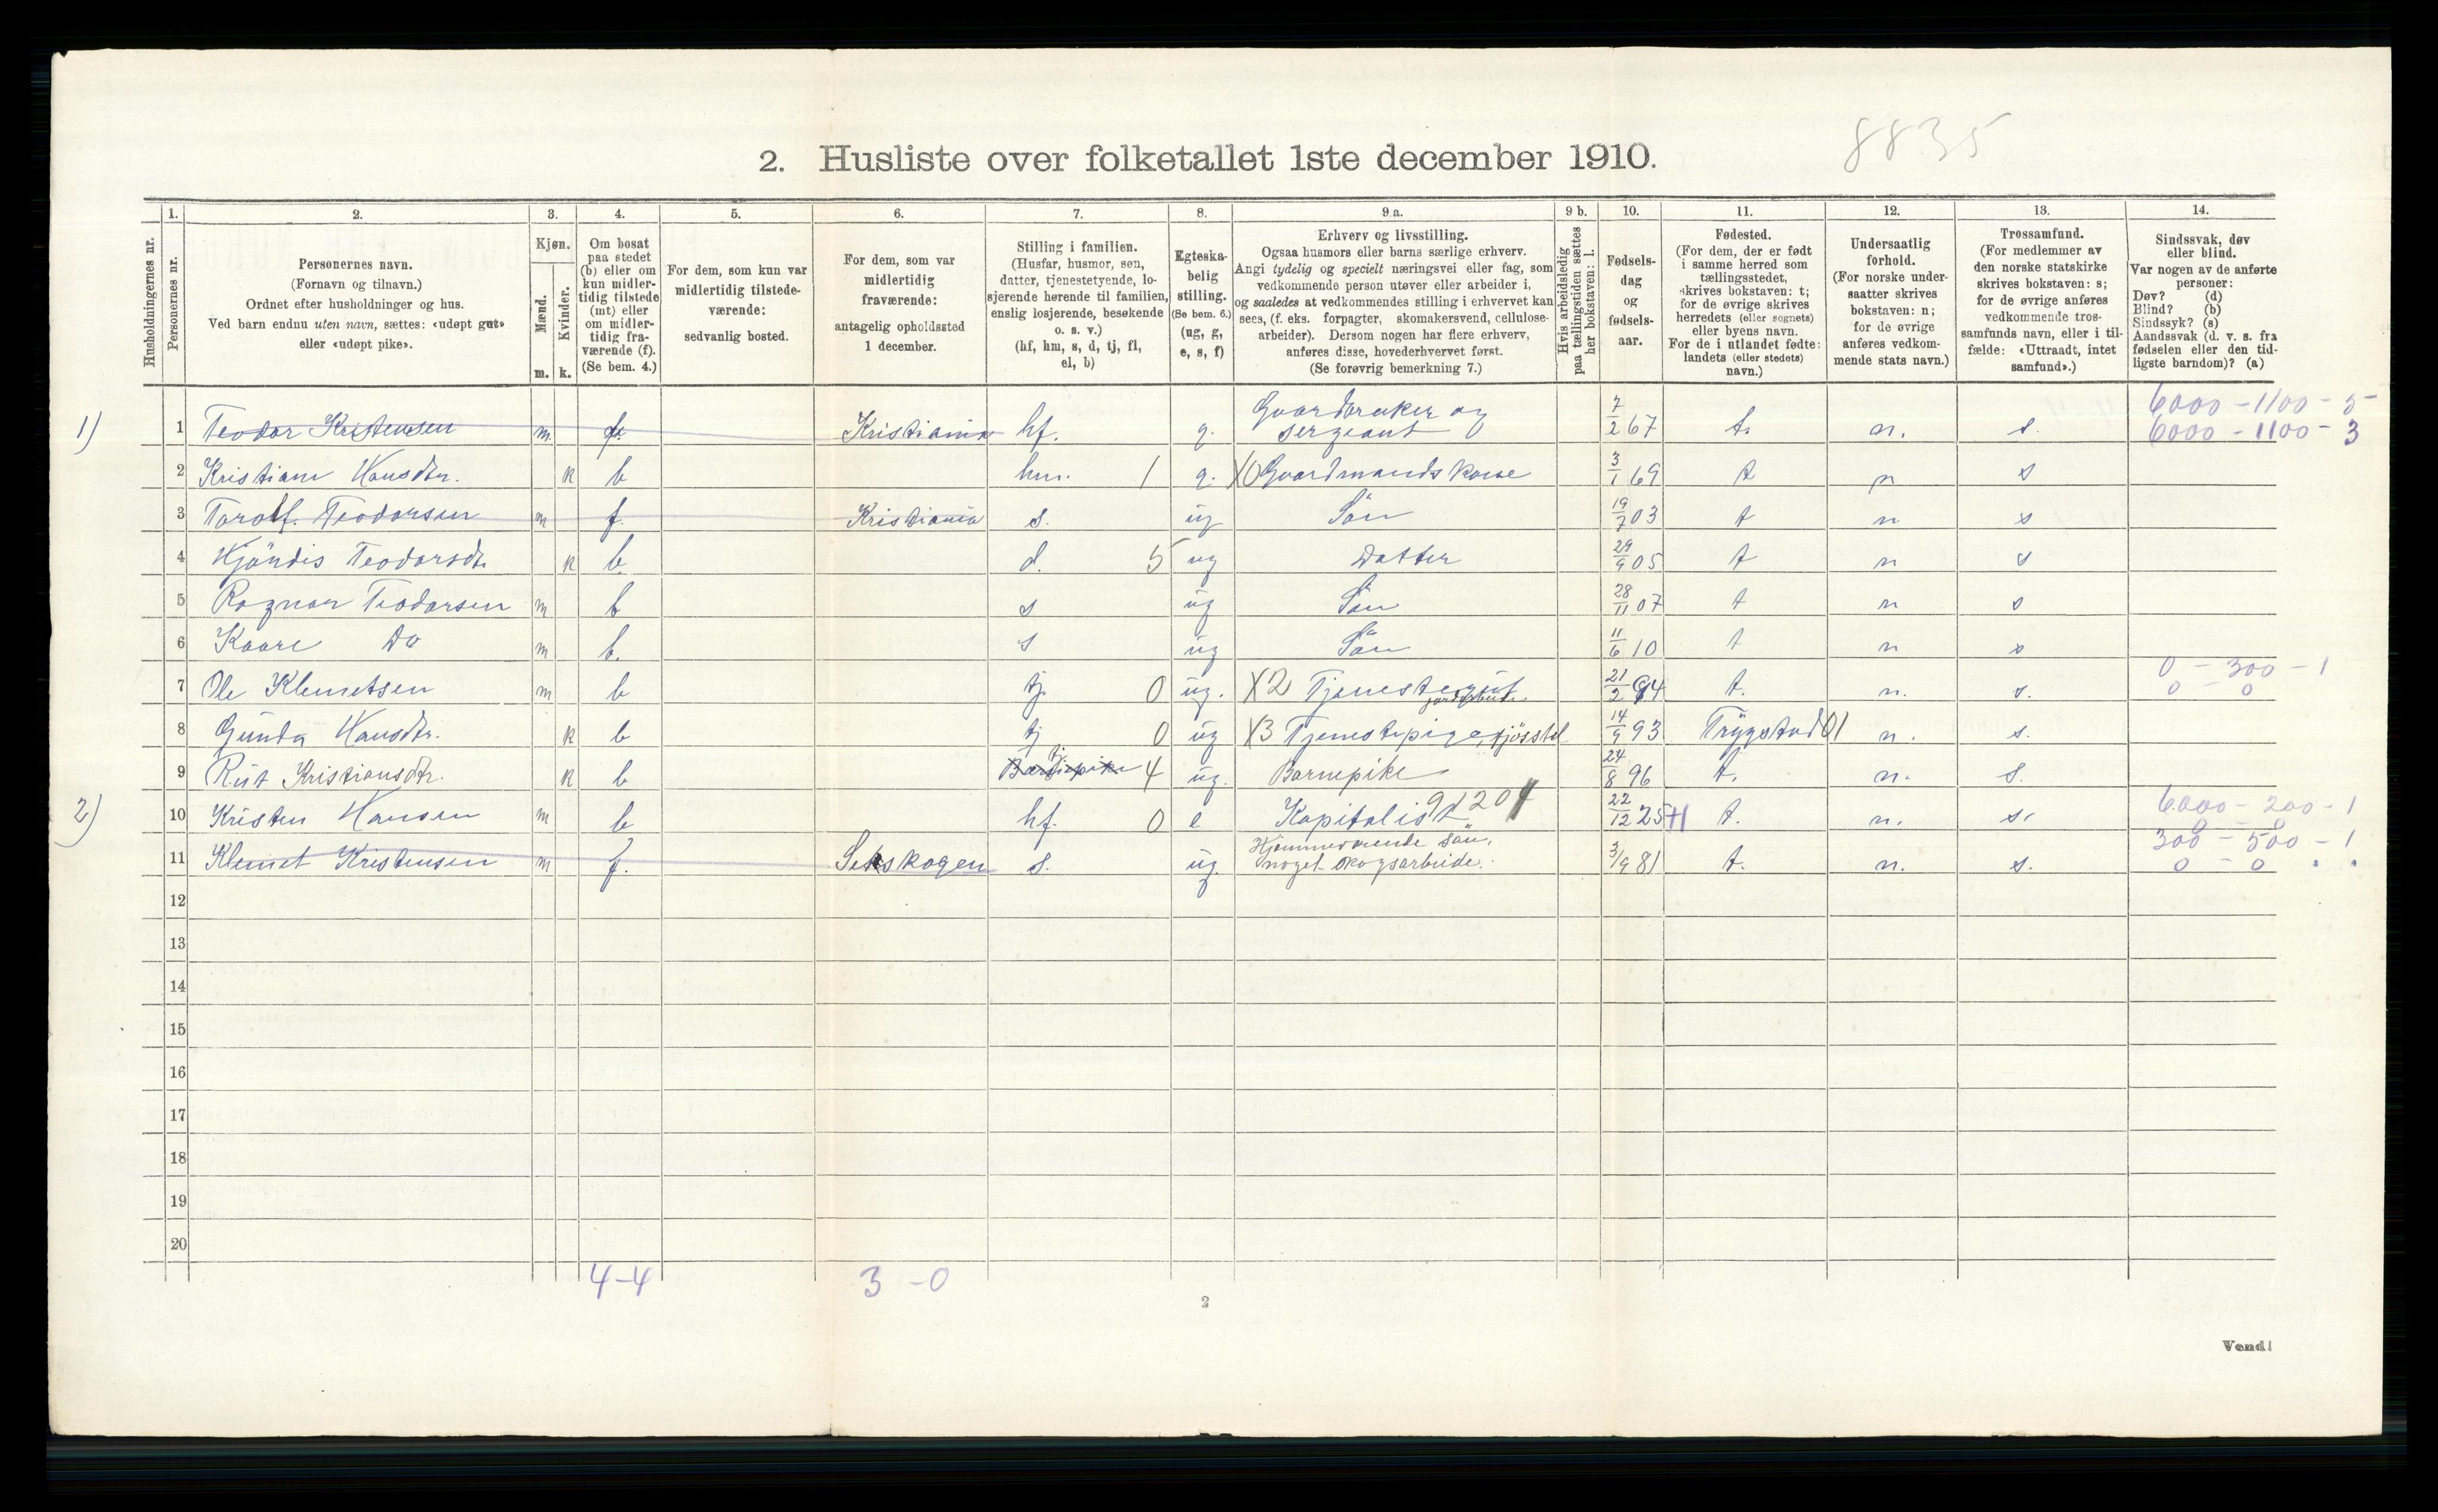 8835
2. Husliste over folketallet 1ste december 1910.
1. 2. 3. 4. 5. 6. 7. 8. 9 a. 9 b. 10. 11. 12. 13. 14.
Husholdningernes nr.
Personernes nr.
Personernes navn.
(Fornavn og tilnavn.)
Ordnet efter husholdninger og hus.
Ved barn endnu uten navn, sættes: «udøpt gut»
eller «udøpt pike».
Kjøn.
Mænd.
Kvinder.
m. k.
Om bosat
paa stedet
(b) eller om
kun midler-
tidig tilstede
(mt) eller
om midler-
tidig fra-
værende (f).
(Se bem. 4.)
For dem, som kun var
midlertidig tilstede-
værende:
sedvanlig bosted.
For dem, som var
midlertidig
fraværende:
antagelig opholdssted
1 december.
Stilling i familien.
(Husfar, husmor, søn,
datter, tjenestetyende, lo-
sjerende hørende til familien,
enslig losjerende, besøkende
o. s. v.)
(hf, hm, s, d, tj, fl,
el, b)
Egteska-
belig
stilling.
(Se bem. 6.)
(ug, g,
e, s, f)
Erhverv og livsstilling.
Ogsaa husmors eller barns særlige erhverv.
Angi tydelig og specielt næringsvei eller fag, som
vedkommende person utøver eller arbeider i,
og saaledes at vedkommendes stilling i erhvervet kan
sees, (f. eks. forpagter, skomakersvend, cellulose-
arbeider). Dersom nogen har flere erhverv,
anføres disse, hovederhvervet først.
(Se forøvrig bemerkning 7.)
Hvis arbeidsledig
paa tællingstiden sættes
her bokstaven: l.
Fødsels-
dag
og
fødsels-
aar.
Fødested.
(For dem, der er født
i samme herred som
tællingsstedet,
skrives bokstaven: t;
for de øvrige skrives
herredets (eller sognets)
eller byens navn.
For de i utlandet fødte:
landets (eller stedets)
navn.)
Undersaatlig
forhold.
(For norske under-
saatter skrives
bokstaven: n;
for de øvrige
anføres vedkom-
mende stats navn.)
Trossamfund.
(For medlemmer av
den norske statskirke
skrives bokstaven: s;
for de øvrige anføres
vedkommende tros-
samfunds navn, eller i til-
fælde: «Uttraadt, intet
samfund».)
Sindssvak, døv
eller blind.
Var nogen av de anførte
personer:
Døv? (d)
Blind? (b)
Sindssyk? (s)
Aandssvak (d. v. s. fra
fødselen eller den tid-
ligste barndom)? (a)
6000 - 1100 - 5
1) 1 Teodor Kristensen m f. Kristiania hf. g. Gaardbruker og sergeant 7/2 67 t. n. s. 6000 - 1100 - 3
2 Kristiane Hansdtr. k b hm. 1 g. X0 Gaardmandskone 3/1 69 t n s
3 Torolf. Teodorsen m f. Kristiania s. ug Sön 19/7 03 t n s
4 Hjördis Teodorsdtr k b. d. 5 ug Datter 29/9 05 t n s
5 Ragnar Teodorsen m b s ug Sön 28/11 07 t n s
6 Kaare Do m b. s ug Sön 11/6 10 t n s
0 - 300 - 1
7 Ole Klemetsen m b tj. 0 ug. X2 Tjenestegut jordarbeide 21/2 94 t. n. s. 0 - 0
8 Gunda Hansdtr. k b tj 0 ug X3 Tjenestepige, fjösstel 14/9 93 Trygstad 01 n. s.
9 Rut Kristiansdtr. k b Barnepike tj 4 ug. Barnepike 24/8 96 t. n. s.
6000 - 200 - 1
2) 10 Kristen Hansen m b hf. 0 e Kapitalist 9d 204 22/12 25 +1 t. n. s. 0 - 0
300 - 500 - 1
11 Klemet Kristensen m f. Setskogen s. ug. Hjemmeværende sön, noget skogsarbeide. 3/9 81 t. n. s. 0 - 0
12
13
14
15
16
17
18
19
20
4-4 3 - 0
2
Vend!